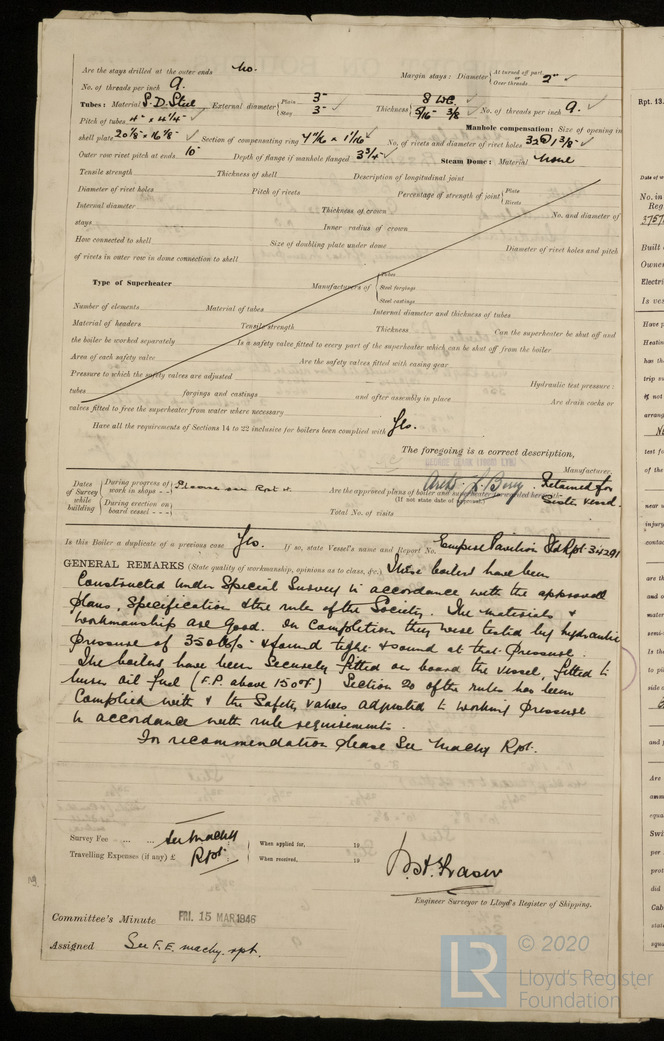 Are the stays drilled at the outer ends No. Margin stays: Diameter { At turned off part, or Over threads 2"
No. of threads per inch 9.
Tubes: Material S.D. Steel External diameter { Plain 3" Stay 3" Thickness { 8 WG. 5/16" 3/8 No. of threads per inch 9.
Pitch of tubes 4" x 4 1/4" Manhole compensation: Size of opening in
shell plate 20 1/8" x 16 1/8" Section of compensating ring x 1 1/16 No. of rivets and diameter of rivet holes 32 @ 1 3/8"
Outer row rivet pitch at ends 10" Depth of flange if manhole flanged 3 3/4" Steam Dome: Material None
Tensile strength Thickness of shell Description of longitudinal joint
Diameter of rivet holes Pitch of rivets Percentage of strength of joint { Plate Rivets
Internal diameter Thickness of crown No. and diameter of
stays Inner radius of crown
How connected to shell Size of doubling plate under dome Diameter of rivet holes and pitch
of rivets in outer row in dome connection to shell
Type of Superheater Manufacturers of { Tubes Steel forgings Steel castings
Number of elements Material of tubes Internal diameter and thickness of tubes
Material of headers Tensile strength Thickness Can the superheater be shut off and
the boiler be worked separately Is a safety valve fitted to every part of the superheater which can be shut off from the boiler
Area of each safety valve Are the safety valves fitted with easing gear
Pressure to which the safety valves are adjusted Hydraulic test pressure:
tubes forgings and castings and after assembly in place Are drain cocks or
valves fitted to free the superheater from water where necessary
Have all the requirements of Sections 14 to 22 inclusive for boilers been complied with Yes.
The foregoing is a correct description,
Manufacturer.
Dates of Survey while building { During progress of work in shops - - Please see Rpt 4. Are the approved plans of boiler and superheater forwarded herewith Retained for
During erection on board vessel - - - (If not state date of approval.) Sister Vessel.
Total No. of visits
Is this Boiler a duplicate of a previous case Yes. If so, state Vessel's name and Report No. Empire Pavilion Rpt 34291
GENERAL REMARKS (State quality of workmanship, opinions as to class, &c.) These boilers have been
Constructed under Special Survey in accordance with the approved
plans, Specification & the rules of the Society. The materials &
workmanship are good. On completion they were tested by hydraulic
pressure of 350 lbs & found tight & sound at that pressure.
The boilers have been securely fitted on board the vessel, fitted to
burn oil fuel (F.P. above 150°F) Section 20 of the rules has been
Complied with & the Safety valves adjusted to working pressure
in accordance with rule requirements.
For recommendation please see Machy Rpt.
Survey Fee ... ... See Machy When applied for, 19
Travelling Expenses (if any) £ Rpt. When received, 19
Engineer Surveyor to Lloyd's Register of Shipping.
Committee's Minute FRI. 15 MAR 1946
Assigned See F.E. machy. rpt.
© 2020
LR Lloyd's Register
Foundation
Rpt. 13.
No. in
Reg
3757
Built
Owne
Electri
Is ves